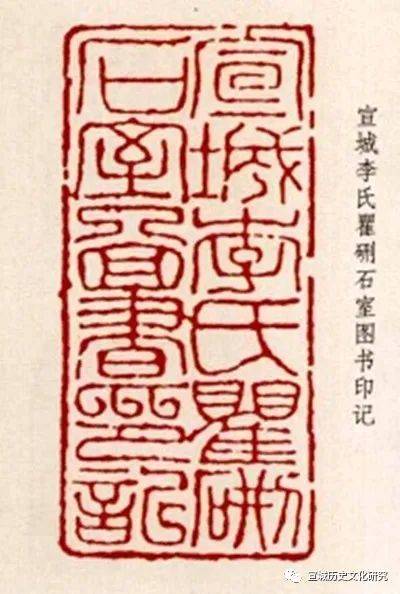 宣城李氏瞿硎
石室圖書印記
宣城李氏瞿硎石室图书印记
宣城历史文化研究